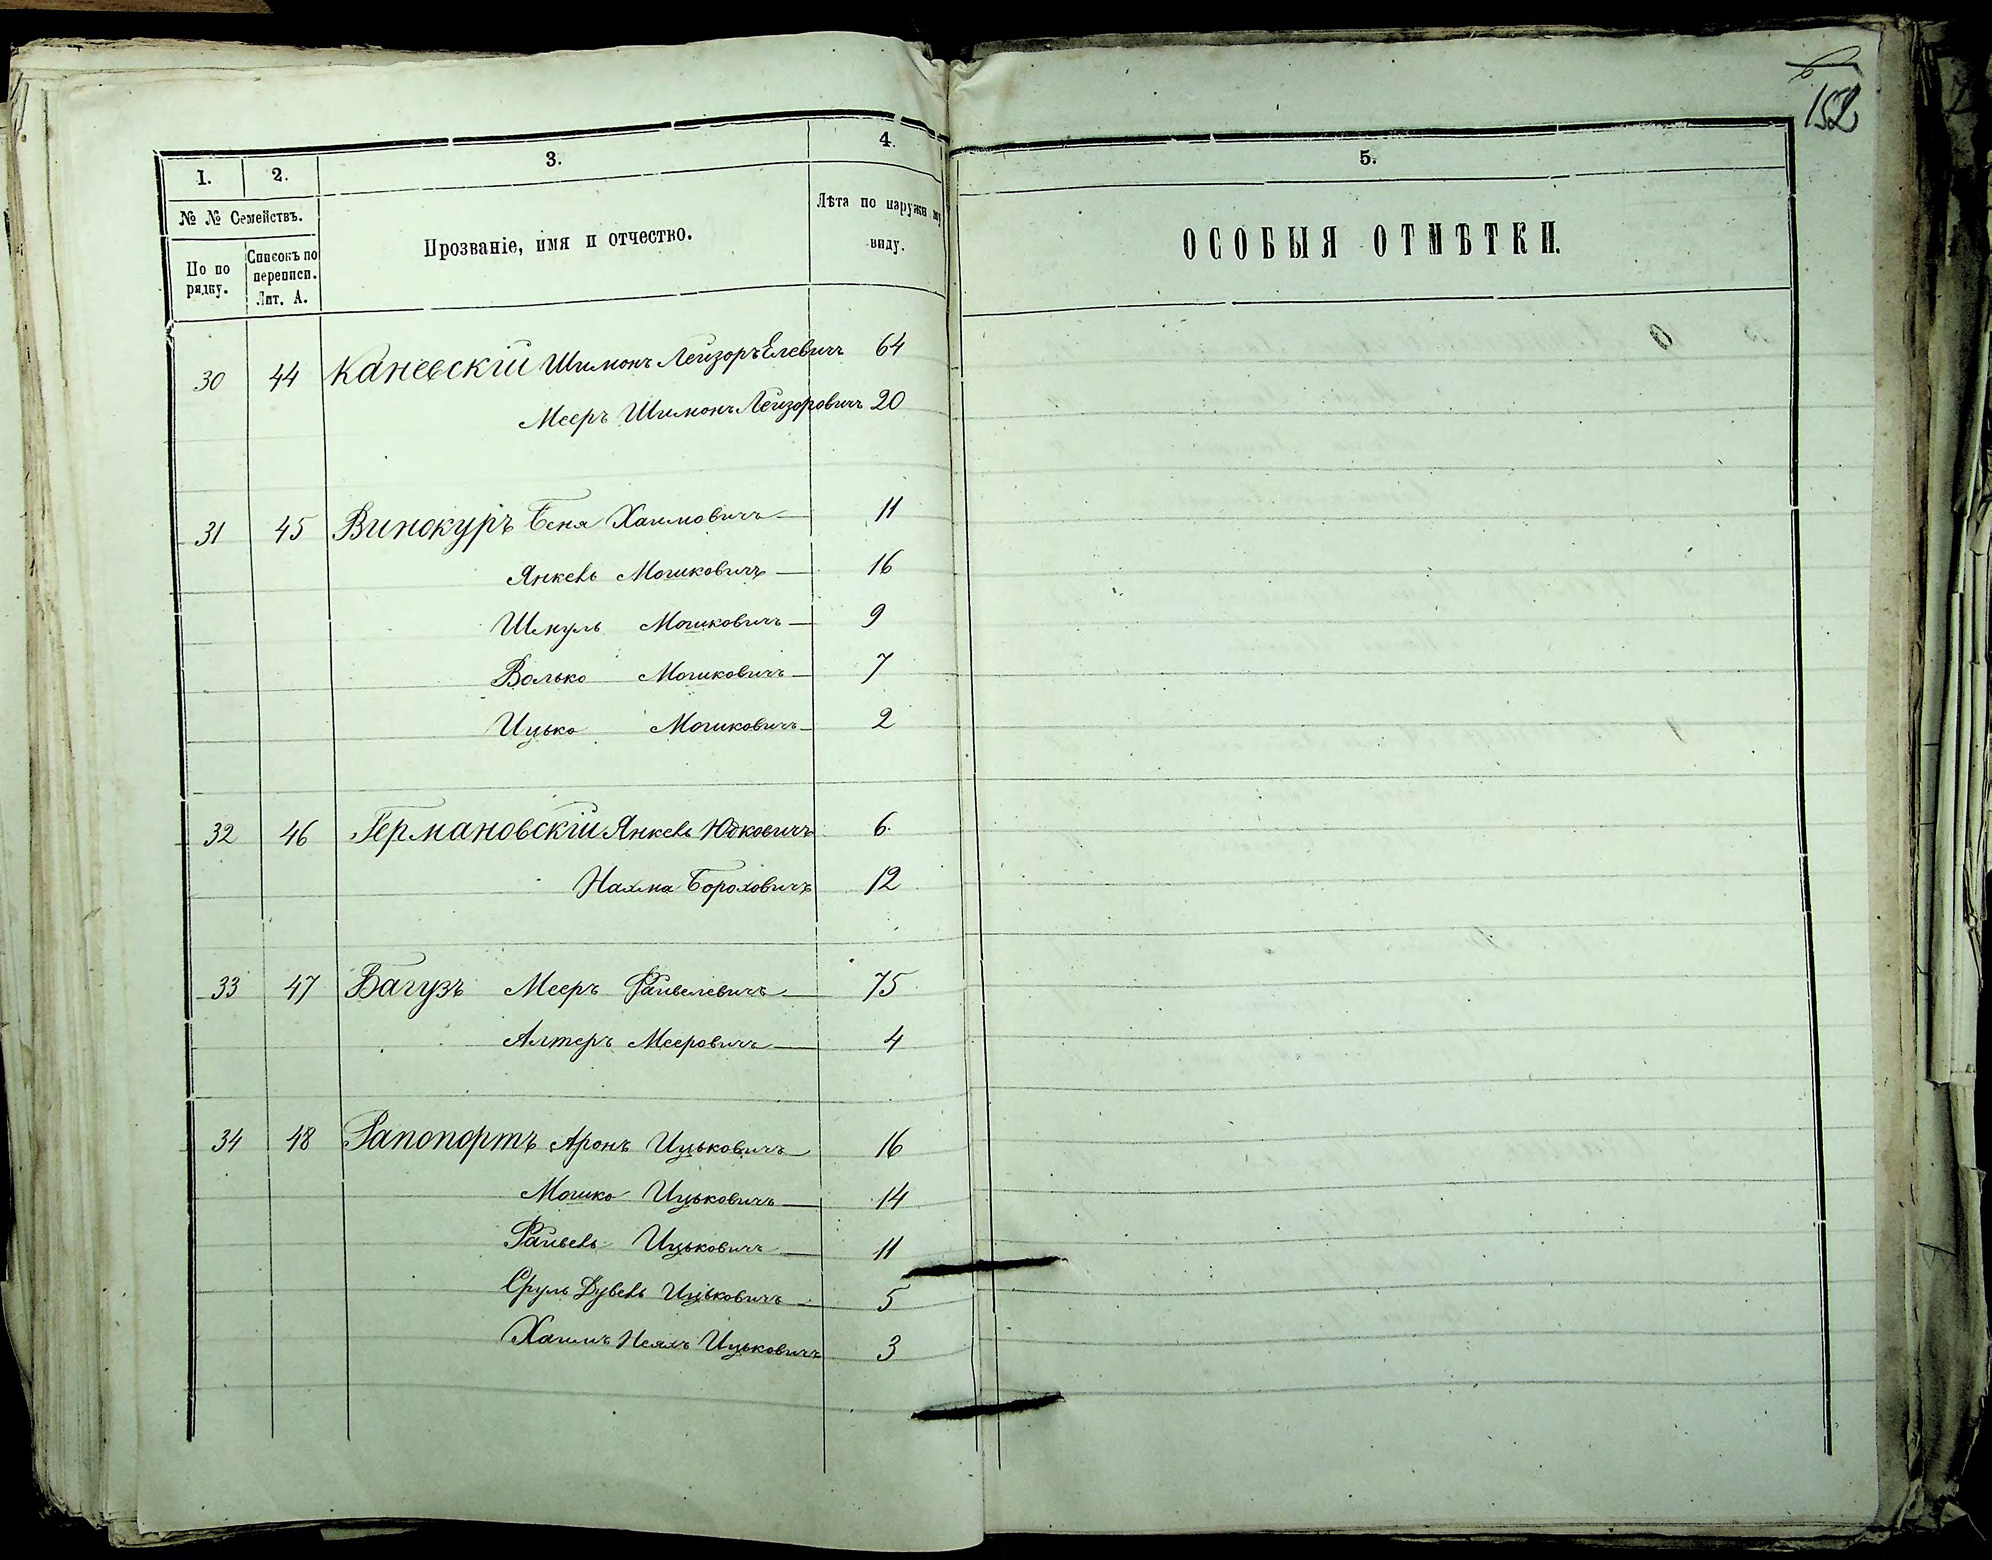 152
1.
2.
3.
4.
5.
№ № Семействъ.
По по
рядку.
Списокъ по
переписи.
Лит. А.
Прозваніе, имя и отчество.
Лѣта по наружн му
виду.
ОСОБЫЯ ОТМѢТКИ.
30 44 Каневскій Шимонъ Лейзоръ Елевичъ 64
Мееръ Шимонъ Лейзоровичъ 20
31 45 Винокуръ Беня Хаимовичъ 11
Янкель Мошковичъ 16
Шмуль Мошковичъ 9
Волько Мошковичъ 7
Ицько Мошковичъ 2
32 46 Германовскій Янкель Юдковичъ 6.
Нахма Бороховичъ 12
33 47 Вагузъ Мееръ Файвелевичъ 75
Алтеръ Мееровичъ 4
34 48 Рапопортъ Аронъ Ицьковичъ 16
Мошко Ицьковичъ 14
Файвель Ицьковичъ 11
Сруль Дувель Ицьковичъ 5
Хаимъ Ицьковичъ 3